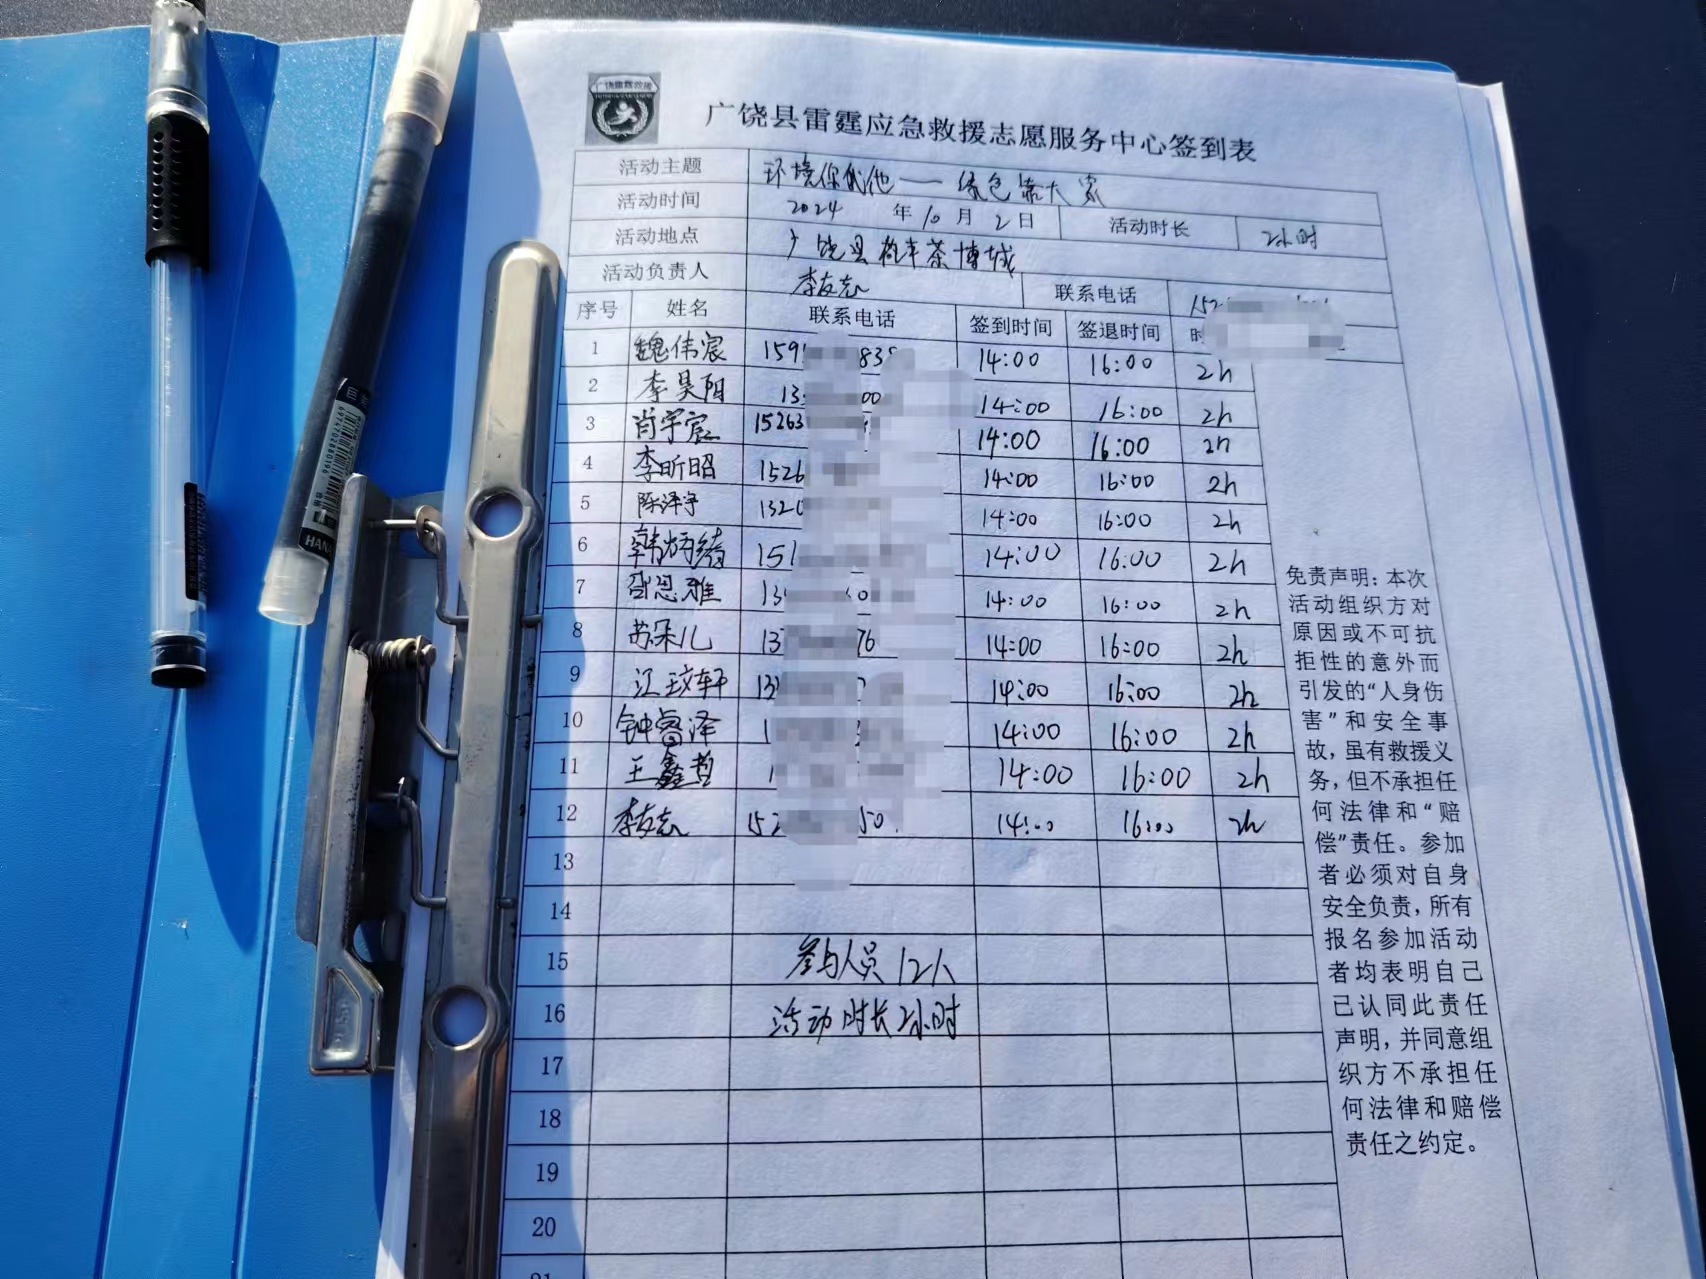 广饶县雷霆应急救援志愿服务中心签到表
活动主题 环境你我他——绿色靠大家
活动时间 2024 年 10 月 2 日 活动时长 2小时
活动地点 广饶县 茶博城
活动负责人 李友志 联系电话 152
序号 姓名 联系电话 签到时间 签退时间 时
1 魏伟宸 159 838 14:00 16:00 2h
2 李昊阳 13 00 14:00 16:00 2h
3 肖宇宸 15263 14:00 16:00 2h
4 李昕昭 1526 14:00 16:00 2h
5 陈泽宇 1320 14:00 16:00 2h
6 韩炳绪 151 14:00 16:00 2h
7 思雅 13 0 14:00 16:00 2h
8 苏朵儿 13 76 14:00 16:00 2h
9 江玟轩 13 14:00 16:00 2h
10 钟睿泽 1 14:00 16:00 2h
11 王鑫哲 1 14:00 16:00 2h
12 李友志 152 50 14:00 16:00 2h
13
14
15 参与人员 12人
16 活动时长2小时
17
18
19
20
21
免责声明：本次
活动组织方对
原因或不可抗
拒性的意外而
引发的“人身伤
害”和安全事
故，虽有救援义
务，但不承担任
何法律和“赔
偿”责任。参加
者必须对自身
安全负责，所有
报名参加活动
者均表明自己
已认同此责任
声明，并同意组
织方不承担任
何法律和赔偿
责任之约定。
HANA
6974202880196